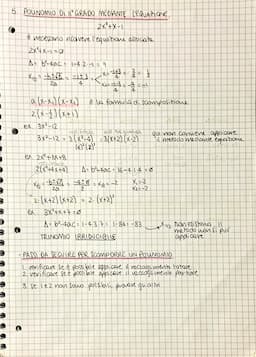 5. POLINOMIO DI II° GRADO MEDIANTE L'EQUAZIONE
2x²+x-1
È necessario risolvere l'equazione associata
2x²+x-1=0
Δ= b²-4ac = 1-4·2·-1 = 9
a(x-x₁)(x-x₂) è la formula di scomposizione
2(x-½)(x+1)
es. 3x²-12
3x²-12 = 3(x²-4) = 3(x+2)(x-2) qui non conviene applicare
il metodo mediante equazione
es. 2x²+8x+8
2(x²+4x+4) Δ= b²-4ac = 16-4·1·4 = 0
x₁=-2
x₂=-2
2·(x+2)(x+2) = 2·(x+2)²
es. 3x²+x+7=0
Δ= b²-4ac = 1-4·3·7 = 1-84 = -83 non esistono, il
metodo non si può
applicare
TRINOMIO IRRIDUCIBILE
- PASSI DA SEGUIRE PER SCOMPORRE UN POLINOMIO
1. verificare se è possibile applicare il raccoglimento totale
2. verificare se è possibile applicare il raccoglimento parziale
3. se 1 e 2 non sono possibili, provare